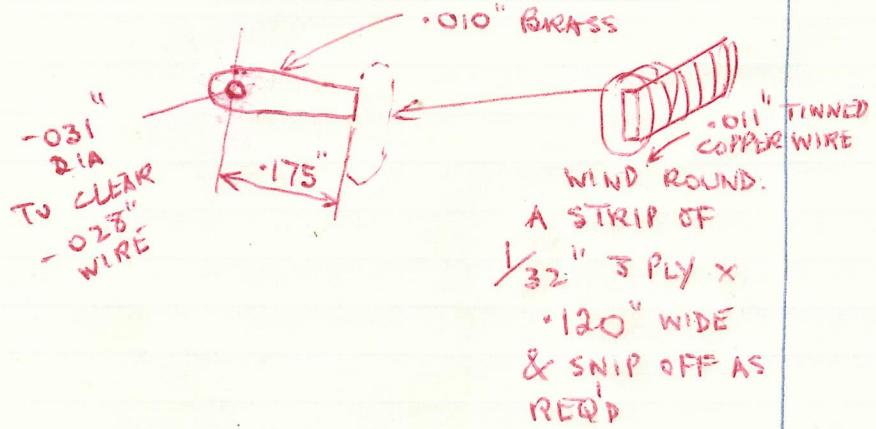 .010" BRASS
.031"
DIA
TO CLEAR
.028"
WIRE
.175"
.011" TINNED
COPPER WIRE
WIND ROUND.
A STRIP OF
1/32" 3 PLY X
.120" WIDE
& SNIP OFF AS
REQ'D